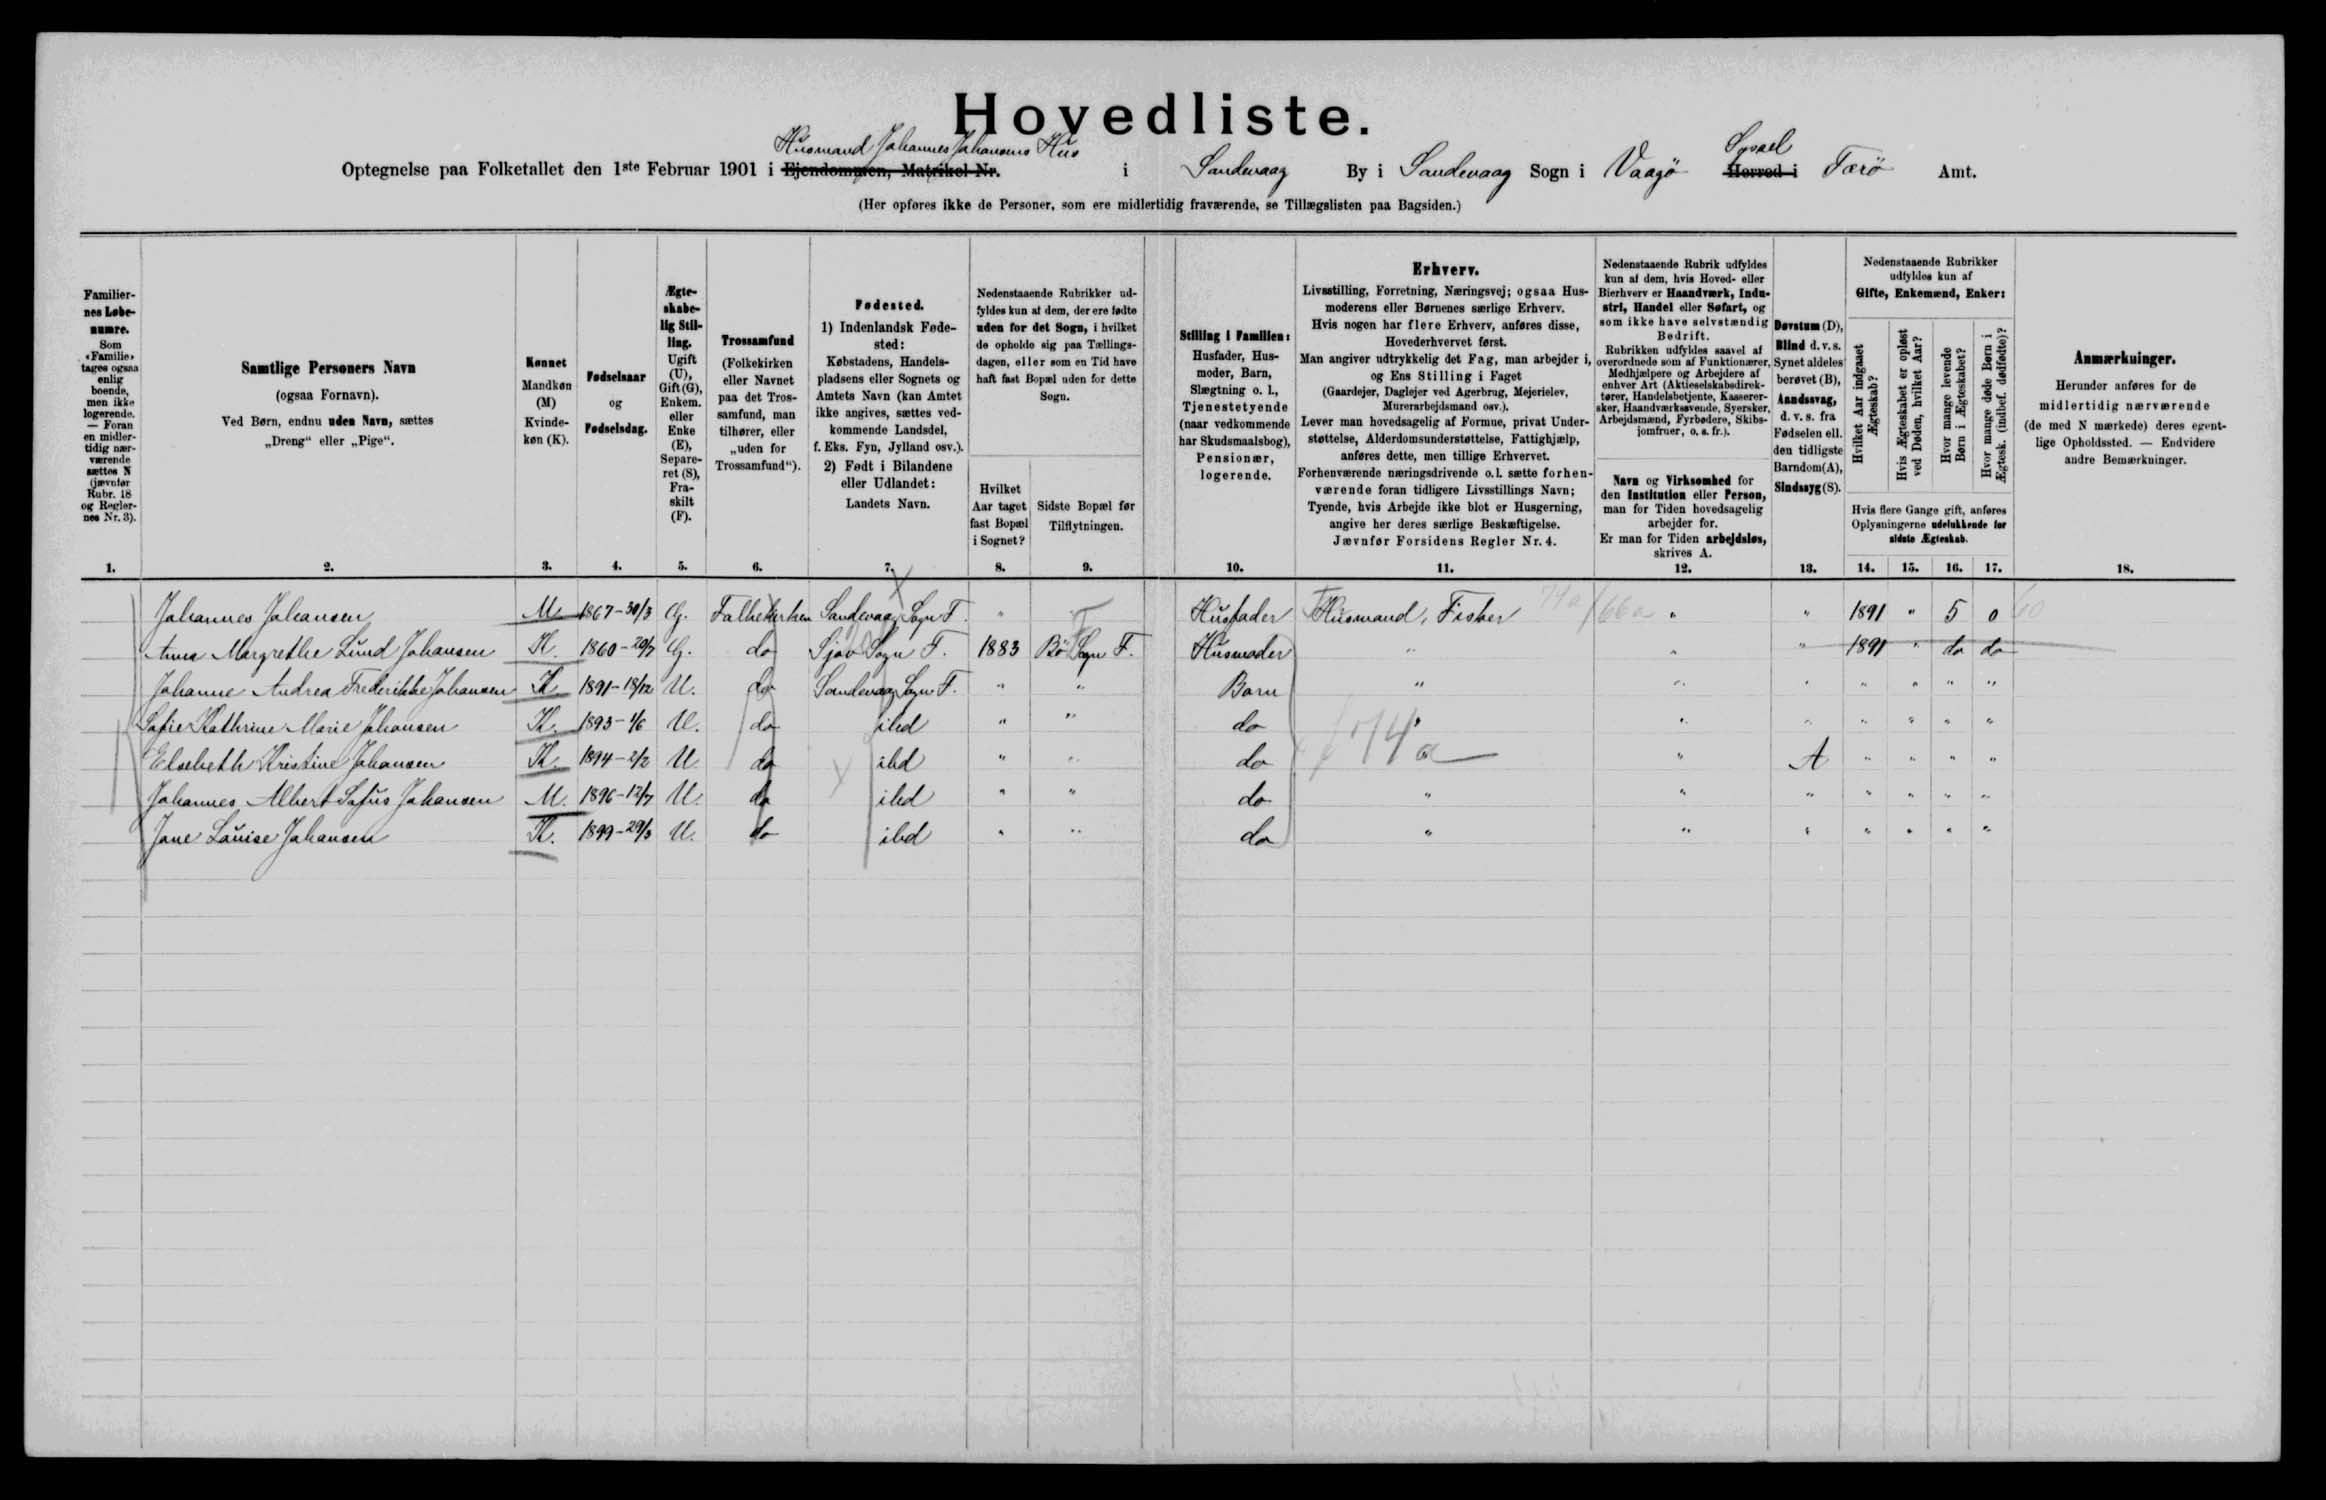 Hovedliste.
Husmand Johannes Johansens Hus
Sysael
Optegnelse paa Folketallet den 1ste Februar 1901 i Ejendommen, Matrikel-Nr. i Sandevaag By i Sandevaag Sogn i Vaagö Herred i Færö Amt.
(Her opføres ikke de Personer, som ere midlertidig fraværende, se Tillægslisten paa Bagsiden.)
Familiernes Løbenumre. Som «Familie» tages ogsaa enlig boende, men ikke logerende. — Foran en midlertidig nærværende sættes N (jævnfør Rubr. 18 og Reglernes Nr. 3).
Samtlige Personers Navn (ogsaa Fornavn). Ved Børn, endnu uden Navn, sættes „Dreng“ eller „Pige“.
Kønnet Mandkøn (M) Kvindekøn (K).
Fødselsaar og Fødselsdag.
Ægteskabelig Stilling. Ugift (U), Gift (G), Enkem. eller Enke (E), Separeret (S), Fraskilt (F).
Trossamfund (Folkekirken eller Navnet paa det Trossamfund, man tilhører, eller „uden for Trossamfund“).
Fødested. 1) Indenlandsk Fødested: Købstadens, Handelspladsens eller Sognets og Amtets Navn (kan Amtet ikke angives, sættes vedkommende Landsdel, f. Eks. Fyn, Jylland osv.). 2) Født i Bilandene eller Udlandet: Landets Navn.
Nedenstaaende Rubrikker udfyldes kun af dem, der ere fødte uden for det Sogn, i hvilket de opholde sig paa Tællingsdagen, eller som en Tid have haft fast Bopæl uden for dette Sogn.
Hvilket Aar taget fast Bopæl i Sognet?
Sidste Bopæl før Tilflytningen.
Stilling i Familien: Husfader, Husmoder, Barn, Slægtning o. l., Tjenestetyende (naar vedkommende har Skudsmaalsbog), Pensionær, logerende.
Erhverv.
Livsstilling, Forretning, Næringsvej; ogsaa Husmoderens eller Børnenes særlige Erhverv.
Hvis nogen har flere Erhverv, anføres disse, Hovederhvervet først.
Man angiver udtrykkelig det Fag, man arbejder i, og Ens Stilling i Faget
(Gaardejer, Daglejer ved Agerbrug, Mejerielev, Murerarbejdsmand osv.).
Lever man hovedsagelig af Formue, privat Understøttelse, Alderdomsunderstøttelse, Fattighjælp, anføres dette, men tillige Erhvervet.
Forhenværende næringsdrivende o.l. sætte forhenværende foran tidligere Livsstillings Navn;
Tyende, hvis Arbejde ikke blot er Husgerning, angive her deres særlige Beskæftigelse.
Jævnfør Forsidens Regler Nr. 4.
Nedenstaaende Rubrik udfyldes kun af dem, hvis Hoved- eller Bierhverv er Haandværk, Industri, Handel eller Søfart, og som ikke have selvstændig Bedrift.
Rubrikken udfyldes saavel af overordnede som af Funktionærer, Medhjælpere og Arbejdere af enhver Art (Aktieselskabsdirektører, Handelsbetjente, Kasserersker, Haandværkssvende, Syersker, Arbejdsmænd, Fyrbødere, Skibsjomfruer, o. s. fr.).
Navn og Virksomhed for den Institution eller Person, man for Tiden hovedsagelig arbejder for.
Er man for Tiden arbejdsløs, skrives A.
Døvstum (D), Blind d. v. s. Synet aldeles berøvet (B), Aandssvag, d. v. s. fra Fødselen ell. den tidligste Barndom (A), Sindssyg (S).
Nedenstaaende Rubrikker udfyldes kun af Gifte, Enkemænd, Enker:
Hvilket Aar indgaaet Ægteskab?
Hvis Ægteskabet er opløst ved Døden, hvilket Aar?
Hvor mange levende Børn i Ægteskabet?
Hvor mange døde Børn i Ægtesk. (indbef. dødfødte)?
Hvis flere Gange gift, anføres Oplysningerne udelukkende for sidste Ægteskab.
Anmærkninger. Herunder anføres for de midlertidig nærværende (de med N mærkede) deres egentlige Opholdssted. — Endvidere andre Bemærkninger.
1. 2. 3. 4. 5. 6. 7. 8. 9. 10. 11. 12. 13. 14. 15. 16. 17. 18.
Johannes Johansen M. 1867-30/3 G. Folkekirken Sandevaag Sogn F. " " Husfader Husmand, Fisker 71a 66a " " 1891 " 5 0 60
Anna Margrethe Lund Johansen K. 1860-20/7 G. do Sjov Sogn F. 1883 Bö Sogn F. Husmoder " " " 1891 " do do
Johanne Andrea Frederikke Johansen K. 1891-18/12 U. do Sandevaag Sogn F. " " Barn " " " " " " "
Sofie Kathrine Marie Johansen K. 1893-1/6 U. do ibd " " do " " " " " " "
Elsebeth Kristine Johansen K. 1894-2/2 U. do ibd " " do 74a " A " " " "
Johannes Albert Sofus Johansen M. 1896-12/7 U. do ibd " " do " " " " " " "
Jane Louise Johansen K. 1899-29/3 U. do ibd " " do " " " " " " "